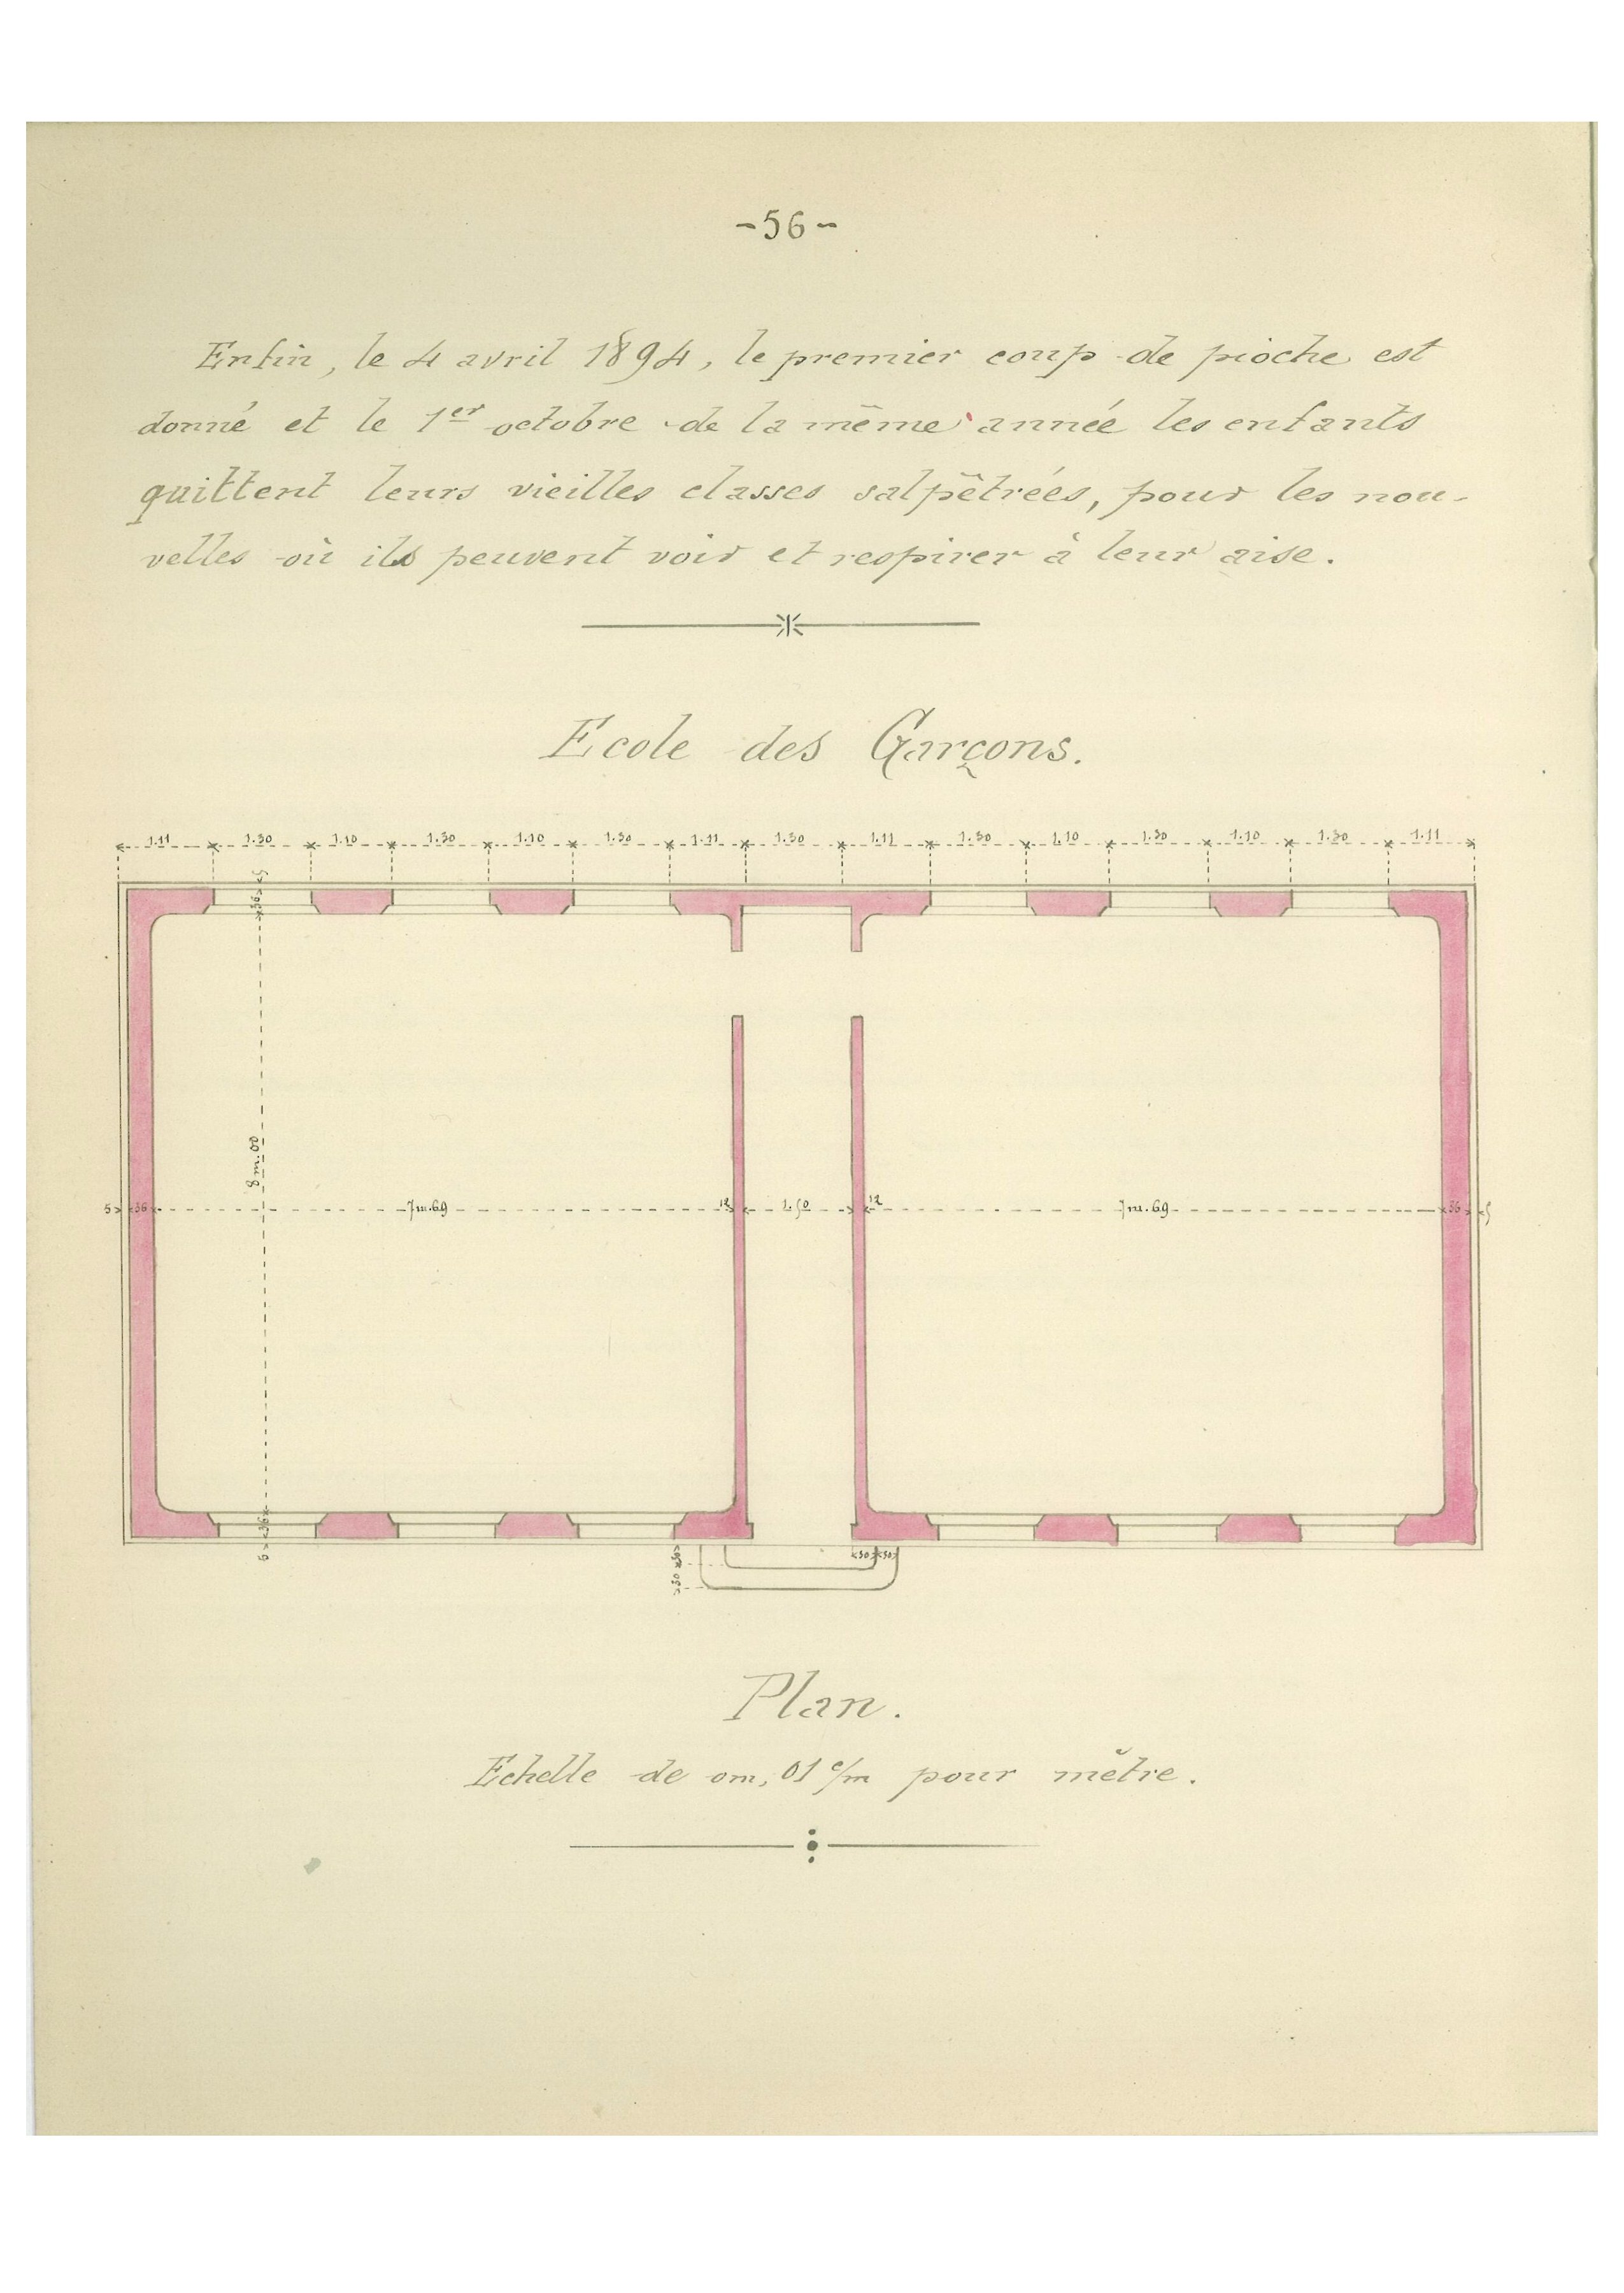 -56-
Enfin, le 4 avril 1894, le premier coup de pioche est
donné et le 1er octobre de la même année les enfants
quittent leurs vieilles classes salpêtrées, pour les nou-
velles où ils peuvent voir et respirer à leur aise.
Ecole des Garçons.
1.11 1.30 1.10 1.30 1.10 1.30 1.11 1.30 1.11 1.30 1.10 1.30 1.10 1.30 1.11
5
36
8m.00
5 36 7m.69 12 1.50 12 7m.69 36 5
36
30 30
30
30
Plan.
Echelle de 0m,01 c/m pour mètre.